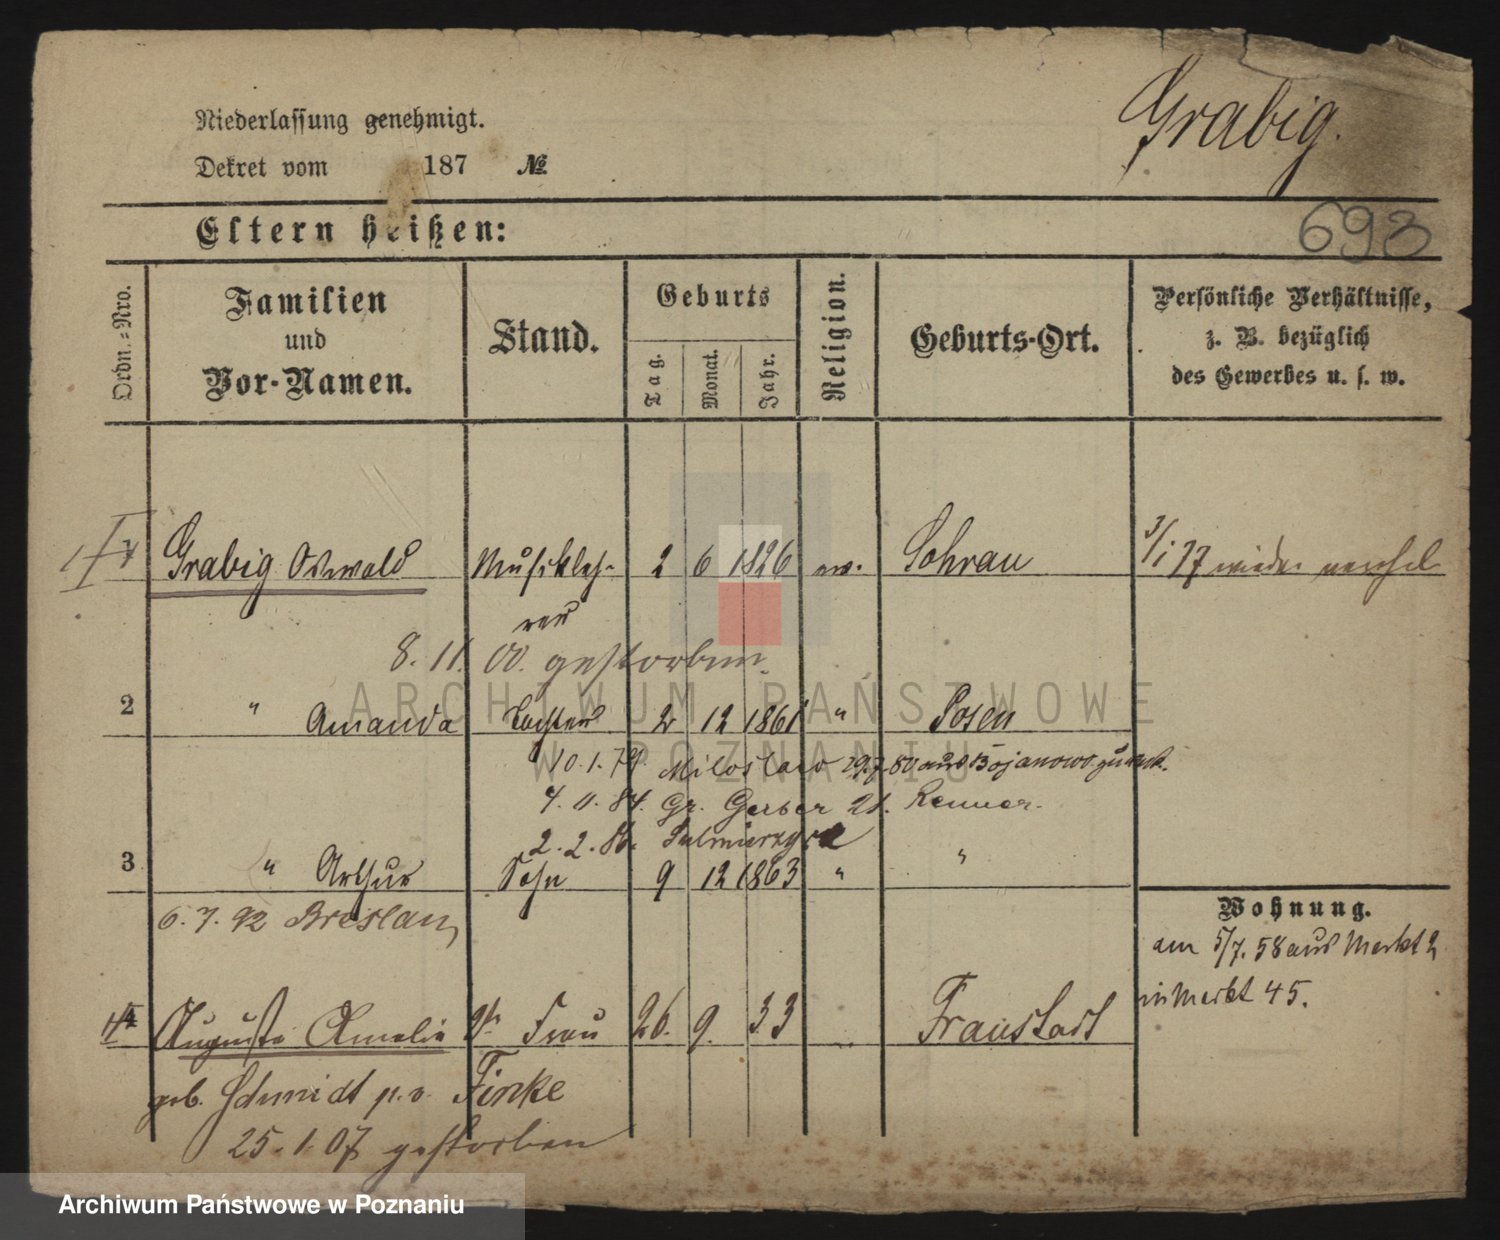 Niederlassung genehmigt.
Grabig.
Dekret vom 187 №
Eltern heißen:
693
Ordn.=Nro.
Familien
und
Vor-Namen.
Stand.
Geburts
Tag.
Monat.
Jahr.
Religion.
Geburts-Ort.
Persönliche Verhältnisse,
z. B. bezüglich
des Gewerbes u. s. w.
Grabig Oswald Musikleh- 2 6 1826 ev. Sohrau 3/1 77 wieder
rer
8. 11. 00. gestorben.
ARCHIWUM PAŃSTWOWE
2 " Amanda Tochter 2 12 1861 " Posen
W POZNANIU
10. 1. 79. Miloslaw 29.7.80 aus Bojanowo zurück.
4. 11. 84. Gr. Gerber 21.
2. 2. 86.
3 " Arthur Sohn 9 12 1863 " "
6. 7. 92 Breslau
Wohnung.
am 5/7. 58 aus Markt 2
in Markt 45.
4 Auguste Amalie Frau 26. 9. 33 Fraustadt
geb. Schmidt p. v. Finke
25. 1. 07 gestorben
Archiwum Państwowe w Poznaniu